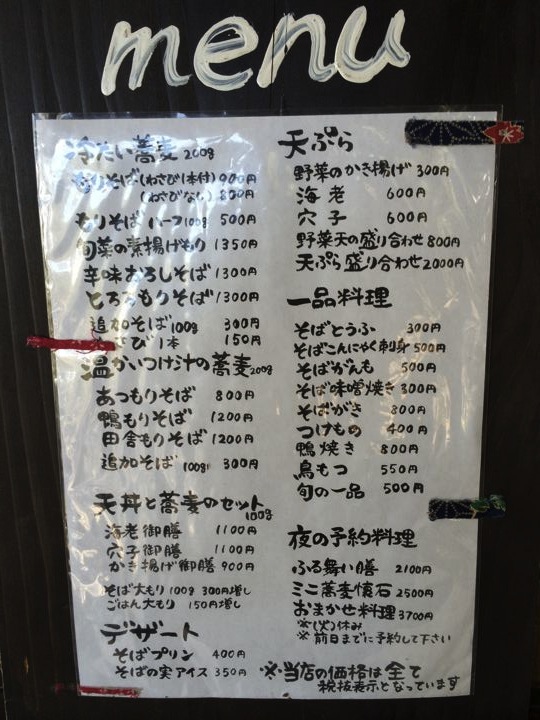 menu
冷たい蕎麦 200g
もりそば(わさび1本付) 900円
(わさびなし) 800円
もりそば ハーフ100g 500円
旬菜の素揚げもり 1350円
辛味おろしそば 1300円
とろろもりそば 1300円
追加そば 100g 300円
わさび1本 150円
温かいつけ汁の蕎麦 200g
あつもりそば 800円
鴨もりそば 1200円
田舎もりそば 1200円
追加そば 100g 300円
天丼と蕎麦のセット 100g
海老御膳 1100円
穴子御膳 1100円
かき揚げ御膳 900円
そば大もり 100g 300円増し
ごはん大もり 150円増し
デザート
そばプリン 400円
そばの実アイス 350円
天ぷら
野菜のかき揚げ 300円
海老 600円
穴子 600円
野菜天の盛り合わせ 800円
天ぷら盛り合わせ 2000円
一品料理
そばとうふ 300円
そばこんにゃく刺身 500円
そばがんも 500円
そば味噌焼き 300円
そばがき 800円
つけもの 400円
鴨焼き 800円
鳥もつ 550円
旬の一品 500円
夜の予約料理
ふる舞い膳 2100円
ミニ蕎麦懐石 2500円
おまかせ料理 3700円
※(火)休み
※前日までに予約して下さい
※当店の価格は全て
税抜表示となっています